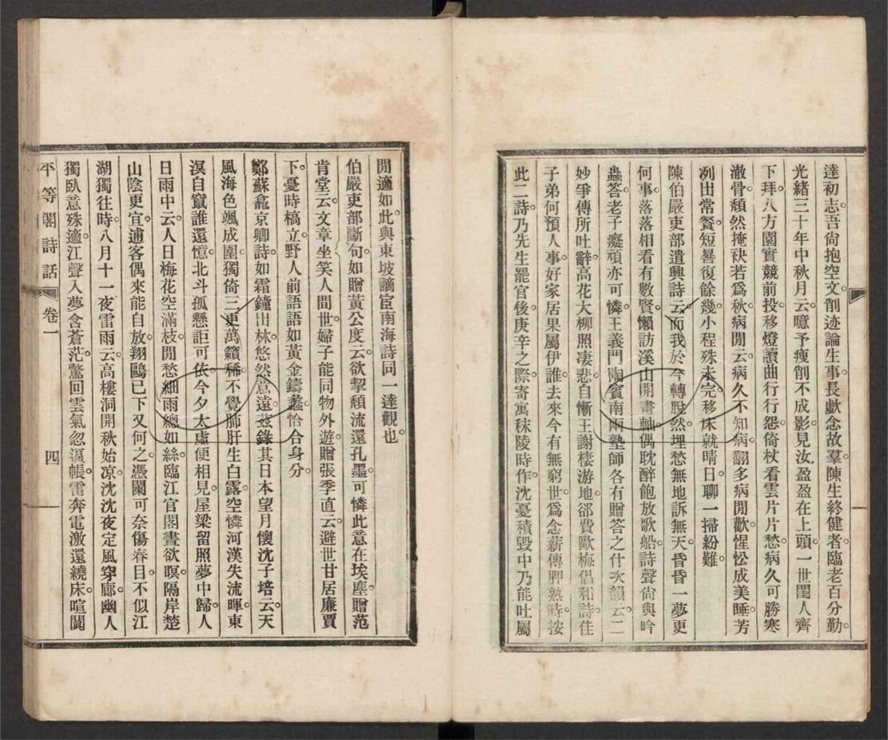 達初志吾尙抱空文削迹論生事長獻念故羣陳生終健者臨老百分勤
光緒三十年中秋月云噫予瘦削不成影見汝盈盈在上頭一世閨人齊
下拜八方園實競前投移燈讀曲行行怨倚杖看雲片片愁病久可勝寒
澈骨頹然掩袂若爲秋病閒云病久不知病翻多病閒歡惺忪成美睡芳
冽出常餐短暑復餘幾小程殊未完移床就晴日聊一掃紛難
陳伯嚴吏部遺興詩云而我於今轉脫然埋愁無地訴無天昏昏一夢更
何事落落相看有數賢懶訪溪山開畫軸偶耽醉飽放歌船詩聲尙與吟
蟲答老子癡頑亦可憐王義門陶賓南兩塾師各有贈答之什次韻云二
妙爭傳所吐辭高花大柳照凄悲自慚王謝棲游地郤費歐梅倡和詩佳
子弟何預人事好家居果屬伊誰去來今有無窮世爲念薪傳胛熟時按
此二詩乃先生罷官後庚辛之際寄寓秣陵時作沈憂積毀中乃能吐屬
閒適如此與東坡謫宦南海詩同一達觀也
伯嚴吏部斷句如贈黃公度云欲挈頹流還孔墨可憐此意在埃塵贈范
肯堂云文章坐笑人間世婦子能同物外遊贈張季直云避世甘居廉賈
下憂時稿立野人前語語如黃金鑄蠡恰合身分
鄭蘇龕京卿詩如霜鐘出林悠然意遠茲錄其日本望月懷沈子培云天
風海色颯成圍獨倚三更萬籟稀不覺肺肝生白露空憐河漢失流暉東
溟自竄誰還憶北斗孤懸詎可依今夕太虛便相見屋梁留照夢中歸人
日雨中云人日梅花空滿枝閒愁細雨總如絲臨江官閣晝欲暝隔岸楚
山陰更宜逋客偶來能自放翔鷗已下又何之憑闌可奈傷春目不似江
湖獨往時八月十一夜雷雨云高樓洞開秋始凉沈沈夜定風穿廊幽人
獨臥意殊適江聲入夢含蒼茫驚回雲氣忽逼帳雷奔電激還繞床喧闐
平等閣詩話 卷一 四